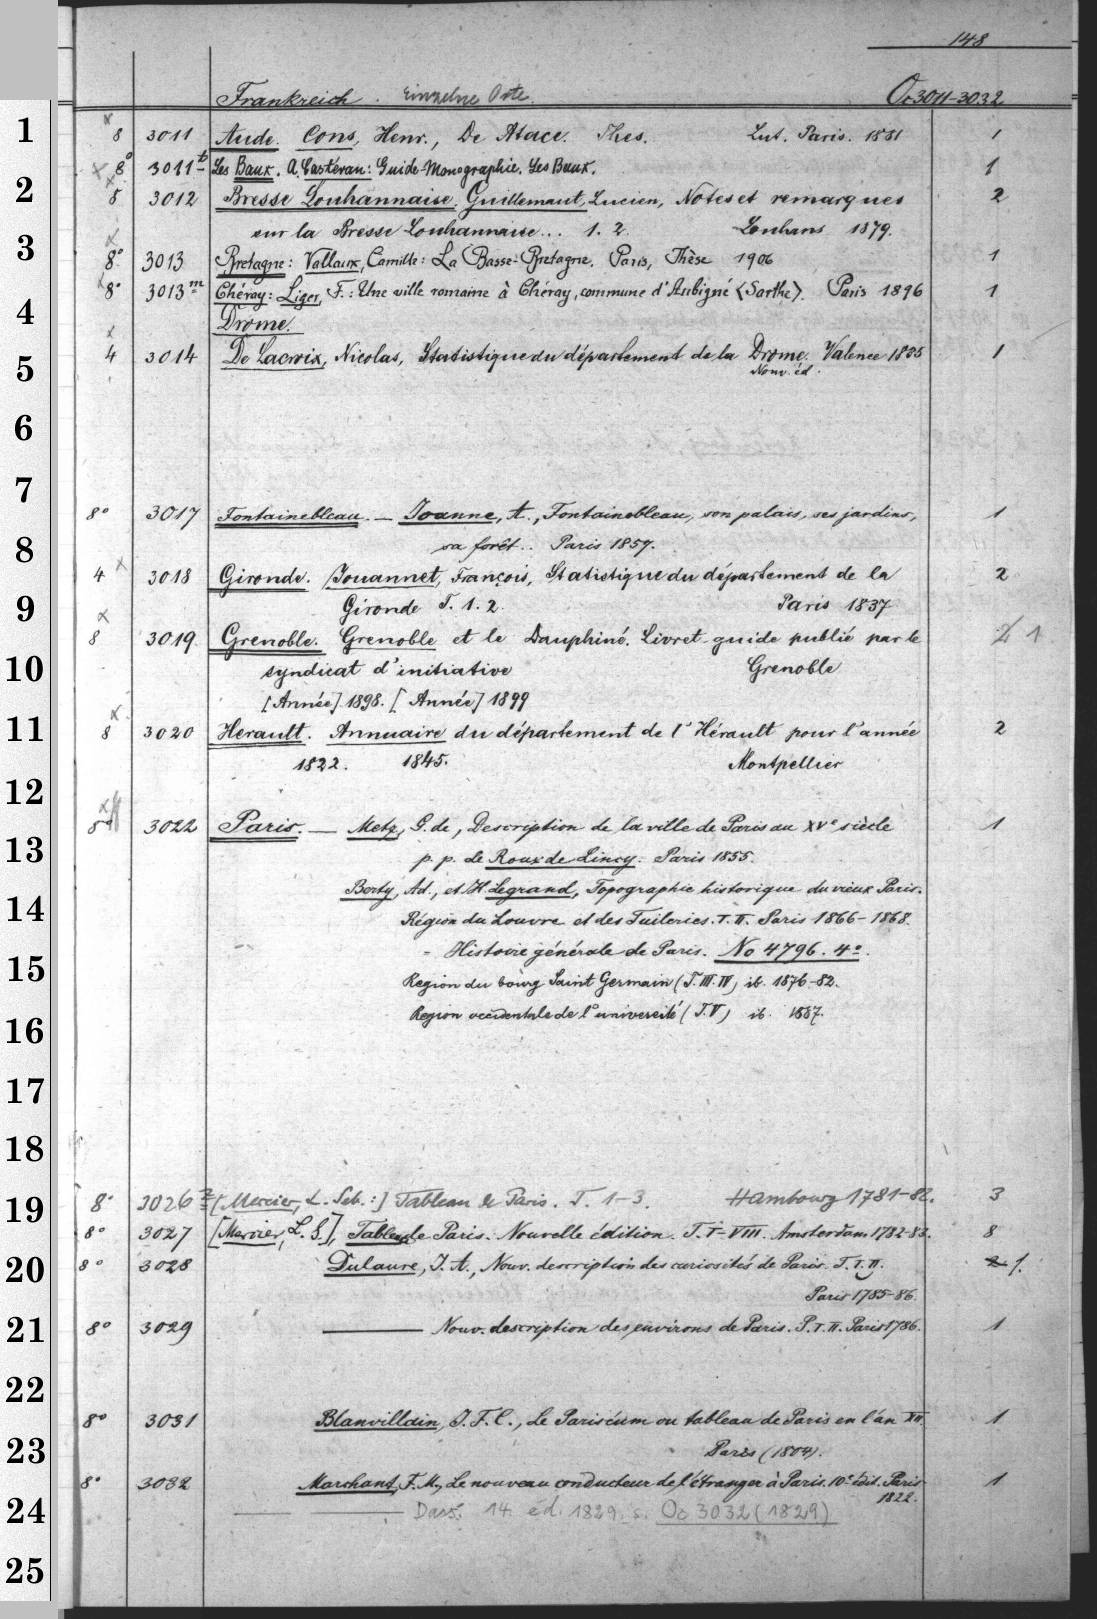 148
Frankreich. Einzelne Orte. Oc 3011-3032
1
8 3011 Aude. Cons, Henr., De Atace. Thes. Lut. Paris. 1881 1
8° 3011b Les Baux. A. Castéran: Guide-Monographie. Les Baux. 1
2
8 3012 Bresse Louhannaise. Guillemaut, Lucien, Notes et remarques 2
sur la Bresse Louhannaise... 1. 2. Louhans 1879.
3
8° 3013 Bretagne: Vallaux, Camille: La Basse-Bretagne. Paris, Thèse 1906 1
8° 3013m Chéray: Liger, F.: Une ville romaine à Chéray, commune d'Aubigné <Sarthe>. Paris 1896 1
4
Drome.
4 3014 De Lacroix, Nicolas, Statistique du département de la Drome. Valence 1835 1
5
Nouv. éd.
6
7
8° 3017 Fontainebleau. — Joanne, A., Fontainebleau, son palais, ses jardins, 1
8
sa forêt.. Paris 1857.
4 3018 Gironde. Jouannet, François, Statistique du département de la 2
9
Gironde T. 1. 2. Paris 1837
8 3019 Grenoble. Grenoble et le Dauphiné. Livret-guide publié par le 2 1
10
syndicat d'initiative Grenoble
[Année] 1898. [Année] 1899
11
8 3020 Herault. Annuaire du département de l'Hérault pour l'année 2
1822. 1845. Montpellier
12
8° 3022 Paris. — Metz, G. de, Description de la ville de Paris au XVe siècle 1
13
p. p. Le Roux de Lincy. Paris 1855.
Berty, Ad., et H. Legrand, Topographie historique du vieux Paris.
14
Région du Louvre et des Tuileries. T. I. II. Paris 1866-1868.
- Histoire générale de Paris. No 4796. 4°.
15
Region du bourg Saint Germain (T. III. IV) ib. 1876-82.
Region occidentale de l'université (T. V) ib. 1887.
16
17
18
8° 3026 [Mercier, L. Seb.:] Tableau de Paris. T. 1-3. Hambourg 1781-82. 3
19
8° 3027 [Mercier, L. S.], Tableau de Paris. Nouvelle édition. T. I-VIII. Amsterdam 1782-83. 8
20
8° 3028 Dulaure, J. A., Nouv. description des curiosités de Paris. T. I. II. 2 1.
Paris 1785-86.
21
8° 3029 — Nouv. description des environs de Paris. P. I. II. Paris 1786. 1
22
8° 3031 Blanvillain, J. F. C., Le Pariséum ou tableau de Paris en l'an XII. 1
23
Paris (1804).
8° 3032 Marchant, F. M., Le nouveau conducteur de l'étranger à Paris. 10e édit. Paris 1
1822.
24
— — Dass. 14. éd. 1829. s. Oc 3032 (1829)
25